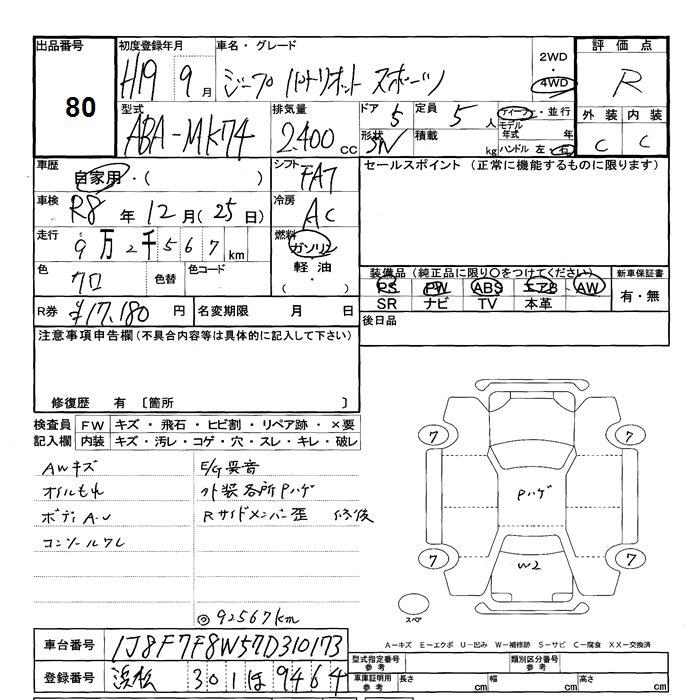 出品番号
80
初度登録年月
H19 9月
車名・グレード
ジープ パトリオット スポーツ
2WD
・
4WD
評価点
R
外装 内装
C C
型式
ABA-MK74
排気量
2400 cc
ドア 5
定員 5人
ディーラー・並行
モデル年式 年
形状
積載 kg
ハンドル 左・右
車歴
自家用・( )
シフト
FAT
セールスポイント (正常に機能するものに限ります)
車検
R8年12月(25日)
冷房
AC
走行
9万2千567km
燃料
ガソリン
・
軽油
( ・ )
色
クロ
色替
色コード
装備品(純正品に限り○をつけてください)
PS PW ABS エアB AW
SR ナビ TV 本革
新車保証書
有・無
R券 ¥17,180 円
名変期限 月 日
後日品
注意事項申告欄(不具合内容等は具体的に記入して下さい)
修復歴 有 〔箇所 〕
検査員記入欄
FW キズ・飛石・ヒビ割・リペア跡・×要
内装 キズ・汚レ・コゲ・穴・スレ・キレ・破レ
AWキズ
オイルもれ
ボディA-U
コンソールワレ
E/G異音
外装各所Pハゲ
Rサイドメンバー歪 修後
◎92567km
7
7
Pハゲ
7
7
W2
スペア
A-キズ E-エクボ U-凹み W-補修跡 S-サビ C-腐食 XX-交換済
車台番号
1J8F7F8W57D310173
登録番号
浜松 301 は 9464
型式指定番号 参考
類別区分番号 参考
車庫証明用 参考
長さ cm
幅 cm
高さ cm